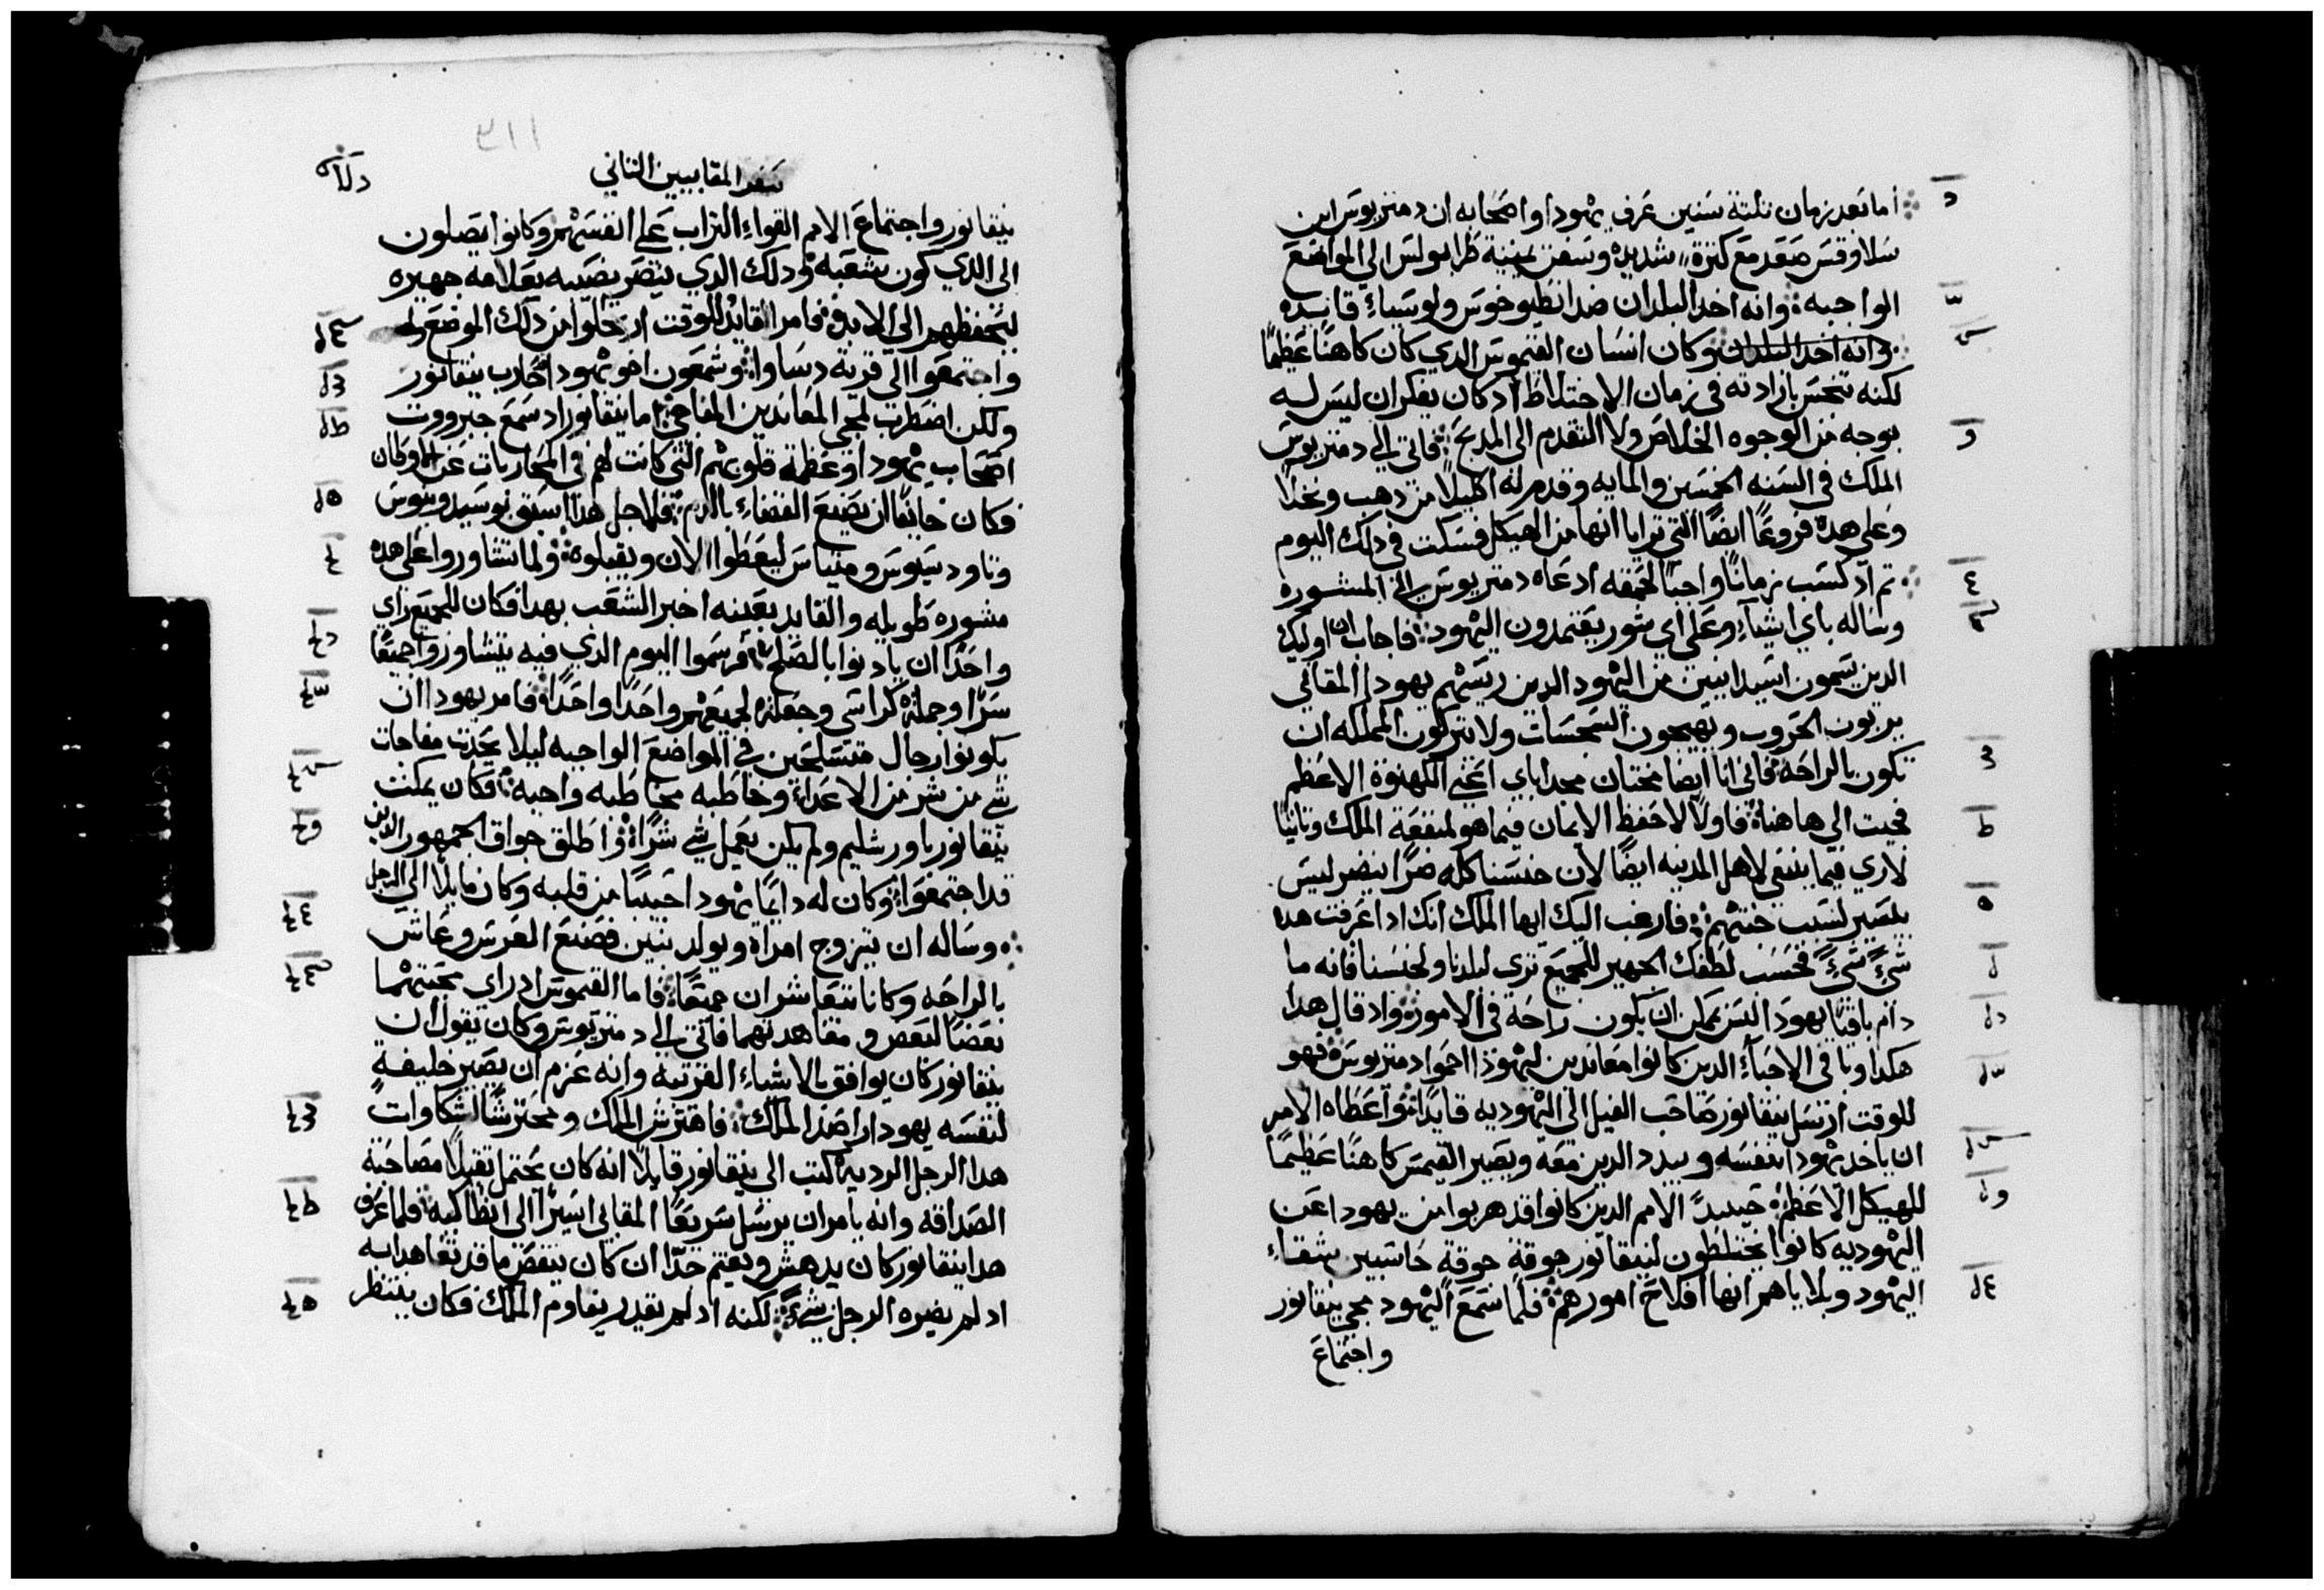 اما بعد زمان تلتة سنين عرف يهودا واصحابه ان دمتريوس ابن
سلاوقس صعد مع كترة شديده وسفن بمينة طرابولس الي المواضع
الواجبه وانه اخد البلدان ضد انطيوخوس ولوسياء قايده
وانه اخد البلدان وكان انسان القيموس الدي كان كاهنا عظيما
لكنه تنجس بارادته في زمان الاختلاط اد كان يفكر ان ليس له
بوجه من الوجوه الخلاص ولا التقدم الى المدبح فاتي الي دمتريوس
الملك في السنه الخمسين والمايه وقدم له اكليلا من دهب ونخلا
وعلي هده فروعا ايضا التي ترايا انها من الهيكل فسكت في دلك اليوم
تم اد كسب زمانا واجبا لحمقه ادعاه دمتريوس الى المشوره
وساله باي اشياء وعلي اي شور يعتمدون اليهود فاجاب ان اوليك
الدين يسمون اسيدانيين من اليهود الدين ريسهم يهودا المقابي
يربون الحروب ويهيجون السجسات ولا يتركون المملكه ان
تكون بالراحه فاني انا ايضا مختان مجد اباي اعني الكهنوة الاعظم
فجيت الي هاهنا فاولا لاحفظ الايمان فيما هو لمنفعة الملك وتانيا
لاري فيما ينبغي لاهل المدينه ايضا لان جنسنا كله ضرا ينضر ليس
بيسير لسبب خبتهم فارغب اليك ايها الملك انك ادا عرفت هدا
شيء شيء فحسب لطفك الجهير للجميع تري لبلدنا ولجنسنا فانه ما
دام باقيا يهودا ليس يمكن ان يكون راحة في الامور واد قال هدا
هكدا وباقي الاحباء الدين كانوا معاندين ليهودا احموا دمتريوس فهو
للوقت ارسل نيقانور صاحب الفيل الي اليهوديه قايدا واعطاه الامر
ان ياخد يهودا بنفسه ويبدد الدين معه ويصير القيمس كاهنا عظيما
للهيكل الاعظم حينيد الامم الدين كانوا قد هربوا من يهودا عن
اليهوديه كانوا يختلطون لنيقانور جوقة جوقة حاسبين شقاء
اليهود وبلاياهم انها افلاح امورهم فلما سمع اليهود مجي نيقانور
واجتماع
سفر المقابيين التاني
٣١١
نيقانور واجتماع الامم القواء التراب علي انفسهم وكانوا يصلون
الى الدي كون شعبه ودلك الدي ينصر نصيبه بعلامه جهيره
ليحفظهم الى الابد فامر القايد للوقت ارتحلوا من دلك الموضع
واجتمعوا الى قرية دساوا وشمعون اخو يهودا حارب نيقانور
ولكن اضطرب لمجي المعاندين المفاجي اما نيقانور اد سمع جبرووت
اصحاب يهودا وعظمة قلوبهم التي كانت لهم في المحاربات عن
فكان خايفا ان يصنع القضاء بالدم فلاجل هدا سبق بوسيدونيوس
وتاودسيوس ومتياس ليعطوا الامان ويقبلوه ولما تشاوروا على هده
مشوره طويله والقايد بعينه اخبر الشعب بهدا فكان للجميع راي
واحدا ان يادنوا بالصلح فرسموا اليوم الدي فيه يتشاوروا جميعا
سرا وحملة كراسي وجعلة لجميعهم واحدا واحدا فامر يهودا ان
يكونوا رجال متسلحين في المواضع الواجبه ليلا يحدت مفاجات
شي من شر من الاعداء وخاطبه مخاطبه واجبه فكان يمكت
نيقانور باورشليم ولم يكن يعمل شي شرا واطلق جواق الجمهور الدين
قد اجتمعوا وكان له دايما يهودا حبيبا من قلبه وكان مايلا الي الرجل
وساله ان يتزوج امراة ويولد بنين فصنع العرس وعاش
بالراحه وكانا يتعاشران جميعا فاما القيموس اد راي محبتهما
بعضا لبعض ومعاهدتهما فاتى الي دمتريوس وكان يقول ان
نيقانور كان يوافق بالاشياء الغريبه وانه عزم ان يصير خليفة
لنفسه يهودا راصد الملك فاهترش الملك ومحترشا لشكاوات
هدا الرجل الرديه كتب الى نيقانور قايلا انه كان يحتمل تقيلا مصاحبة
الصداقه وانه يامر ان يرسل سريعا المقابي اسيرا الى انطاكيه فلما عرف
هدا نيقانور كان يدهش ويغتم جدا ان كان ينقض ما قد تعاهدا به
اد لم يضيره الرجل بشيء لكنه اد لم يقدر يقاوم الملك فكان ينتظر